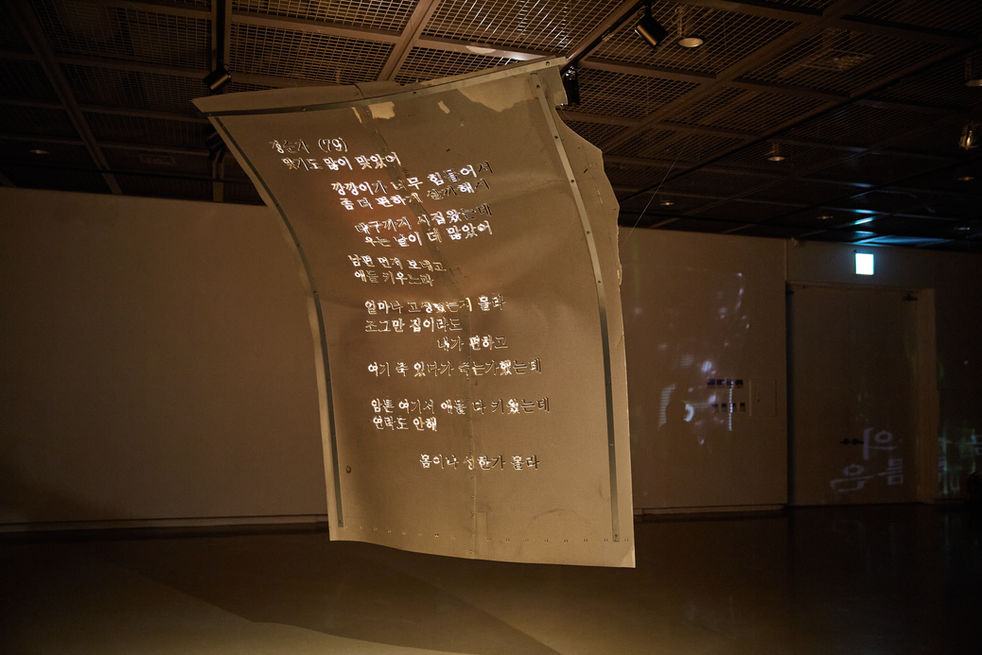 (79)
맞기도 많이 맞았어
깡깡이가 너무 힘들어서
좀 더 편하게 살까해서
대구까지 시집왔는데
우는 날이 더 많았어
남편 먼저 보내고
애들 키우느라
얼마나 고생했는지 몰라
조그만 집이라도
내가 편하고
여기 죽 있다가 죽는가했는데
암튼 여기서 애들 다 키웠는데
연락도 안해
몸이나 성한가 몰라